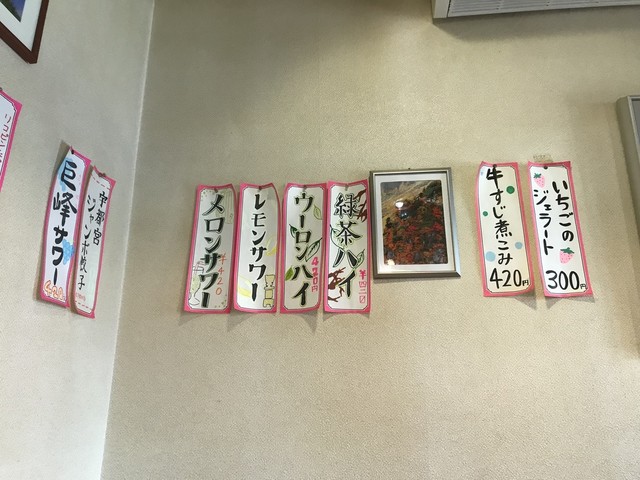 巨峰サワー
宇都宮
ジャンボ餃子
メロンサワー
¥420
レモンサワー
ウーロンハイ
420円
緑茶ハイ
¥四二〇
牛すじ煮こみ
420円
いちごの
ジェラート
300円